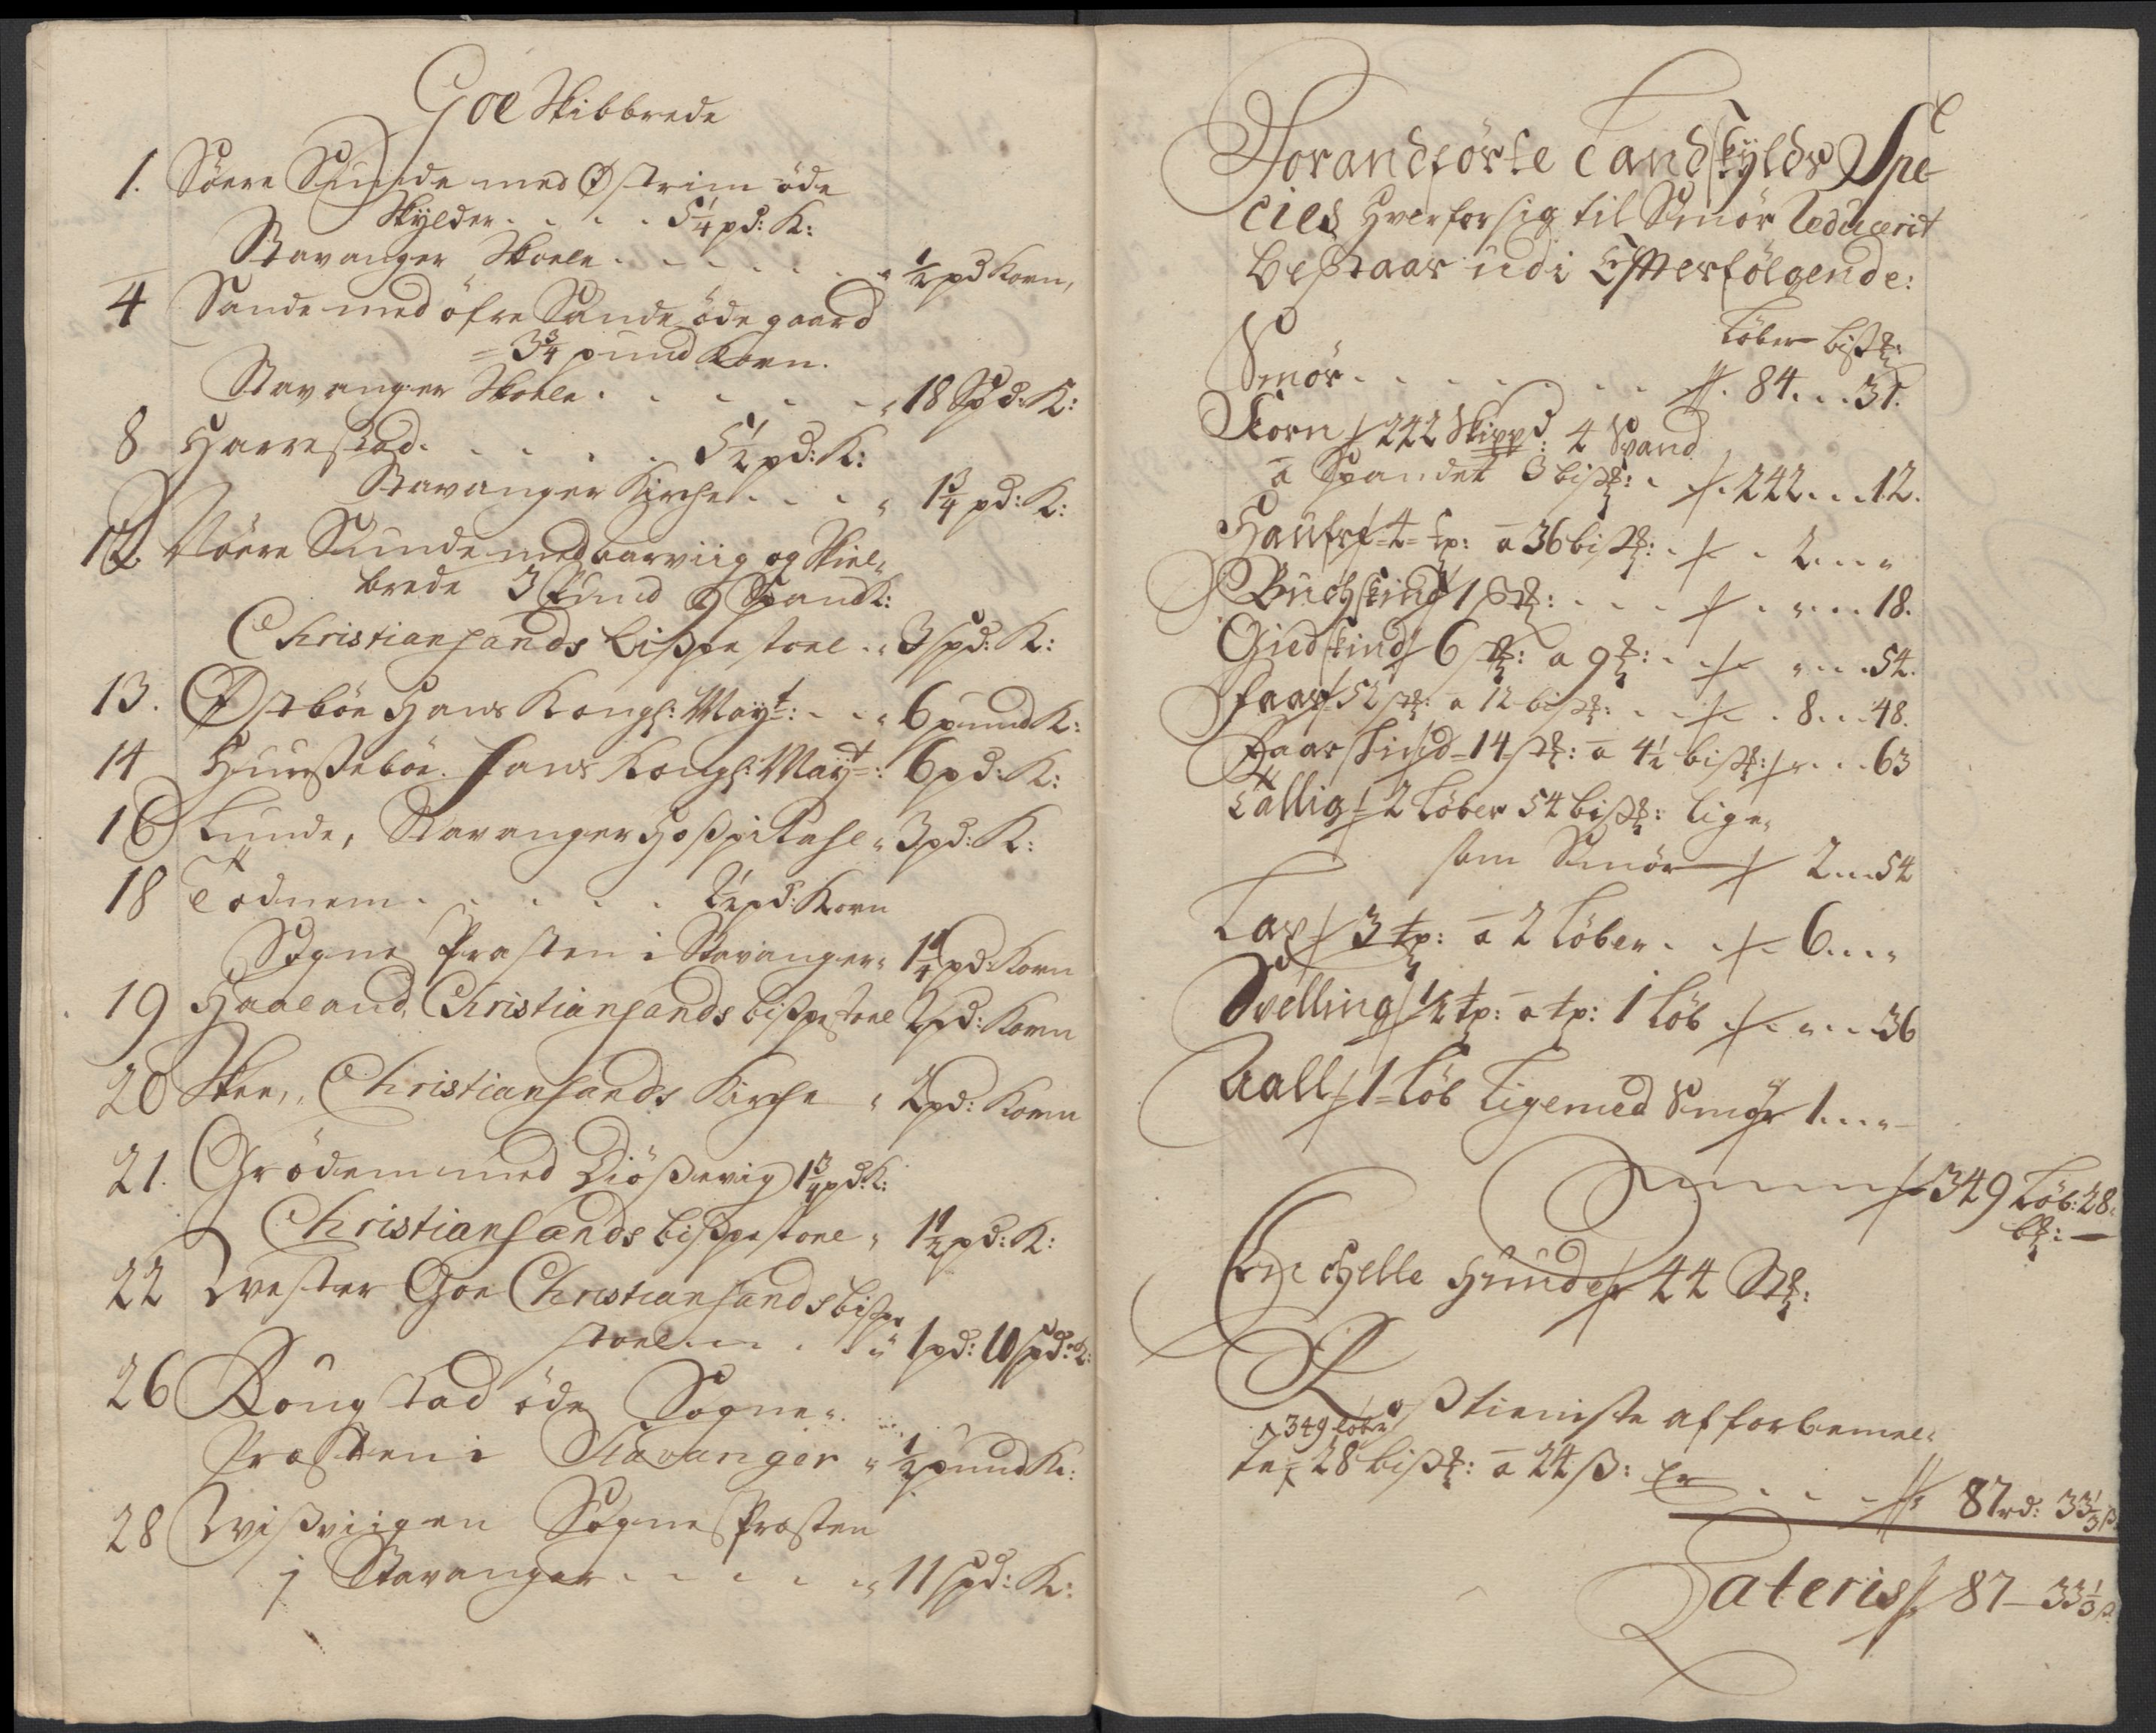 Goe Skibbrede
1. Söere Sunde med Østrim öde
Skylder . . . . 5¼ pd: K:
Stavanger Skoele . . . . . . " ½ pd Korn,
4 Sande med öfre Sande öde gaard
= 3¾ pund Korn.
Stavanger Skoele . . . . . " 18 Spd: K:
8 Harrestad . . . . . 5½ pd: K:
Stavanger Kirche . . . " 1¾ pd: K:
12. Nöere Sunde med aarviig og Skiel„
brede 3 Pund 9 Spand K:
Christiansands bispestoel . " 3 spd: K:
13. Østböe Hans Kongl: Mayt: . . " 6 pund K:
14 Huusseböe. Hans Kongl: Mayt: 6 pd: K:
16 Lunde, Stavanger Hospitahl " 3 pd: K:
18 Todnem . . . . . 2½ pd: Korn
Sogne Præsten i Stavanger " 1¼ pd: Korn
19 Haaland, Christiansands bispestoel 2 pd: Korn
20 Skee, Christiansands Kirche " 2 pd: Korn
21. Grödem med Diössevig 1¾ pd: K:
Christiansands bispestoel " 1½ pd: K:
22 Vester Goe Christiansands bispe
stoel . . . . " 1 pd: 10 spd: K:
26 Rougstad öde Sogne„
Præsten i Stavanger " ½ pund K:
28 Visviigen Sogne Præsten
i Stavanger . . . . . " 11 spd: K:
Foranförte Landskylds Spe
cies hver for sig til Smör Reducerit
bestaar udi Efterfölgende:
Löber bisß:
Smör . . . . . . . . 84 . . . 31.
Korn / 242 Skippd: 4 Spand
a Spandet 3 bisß: . . 242 . . . 12.
Haufre 4 tp: a 36 bisß: . . 2 . . . "
Buchskind 1 st: . . . . " . . . 18.
Giedskind 6 st: a 9 ß: . . " . . . 54.
faar 52 st: a 12 bisß: . . . 8 . . . 48.
Faarskind 14 st: a 4½ bisß: " . . . 63
Tallig 2 Löber 54 bisß: lige„
som Smör 2 . . . 54
Lax 3 tp: a 2 Löber . . 6 . . . "
Qvelling ½ tp: a tp: 1 Löb . " . . . 36
Aall 1 Löb Lige med Smör 1 . . . "
Summa 349 Löb: 28
bß: —
Enchelle Huuder 44 St:
Rostieniste af forbemel„
349 löber
te 28 bisß: a 24 ß: Er . . . 87 rd: 33⅓ ß
Lateris 87 — 33⅓ ß